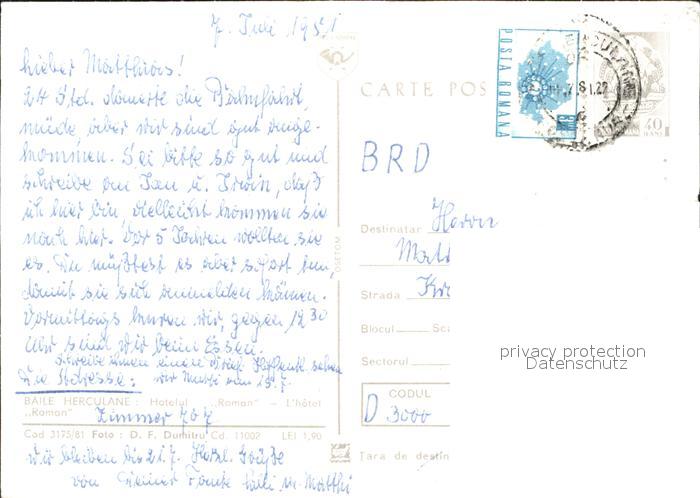 7. Juli 1981
Lieber Matthias!
24 Std. dauerte die Bahnfahrt,
müde aber wir sind gut ange-
kommen. Sei bitte so gut und
schreibe an Jan u. Irwin, daß
ich hier bin, vielleicht kommen sie
noch her. Vor 5 Jahren wollten sie
es. Du müßtest es aber sofort tun,
damit sie sich anmelden können.
Vormittags kuren wir, gegen 12 30
Uhr sind wir beim Essen.
schreibe ihnen einen Brief. Hoffentl. sehen
Die Adresse: wir Matthi am 15.7.
BĂILE HERCULANE: Hotelul „Roman" – L'hôtel
„Roman" Zimmer 707
Cod 3175/81 Foto: D. F. Dumitru Cd. 11002 LEI 1,90
Wir bleiben bis 21.7. Herzl. Grüße
von Deiner Tante u. Matthi
CARTE POS
POSTA ROMANA
40
BANI
BRD
Destinatar Herrn
Matt
Strada Kr
Blocul Sc
Sectorul
privacy protection
Datenschutz
CODUL
D 3000
Ţara de destin